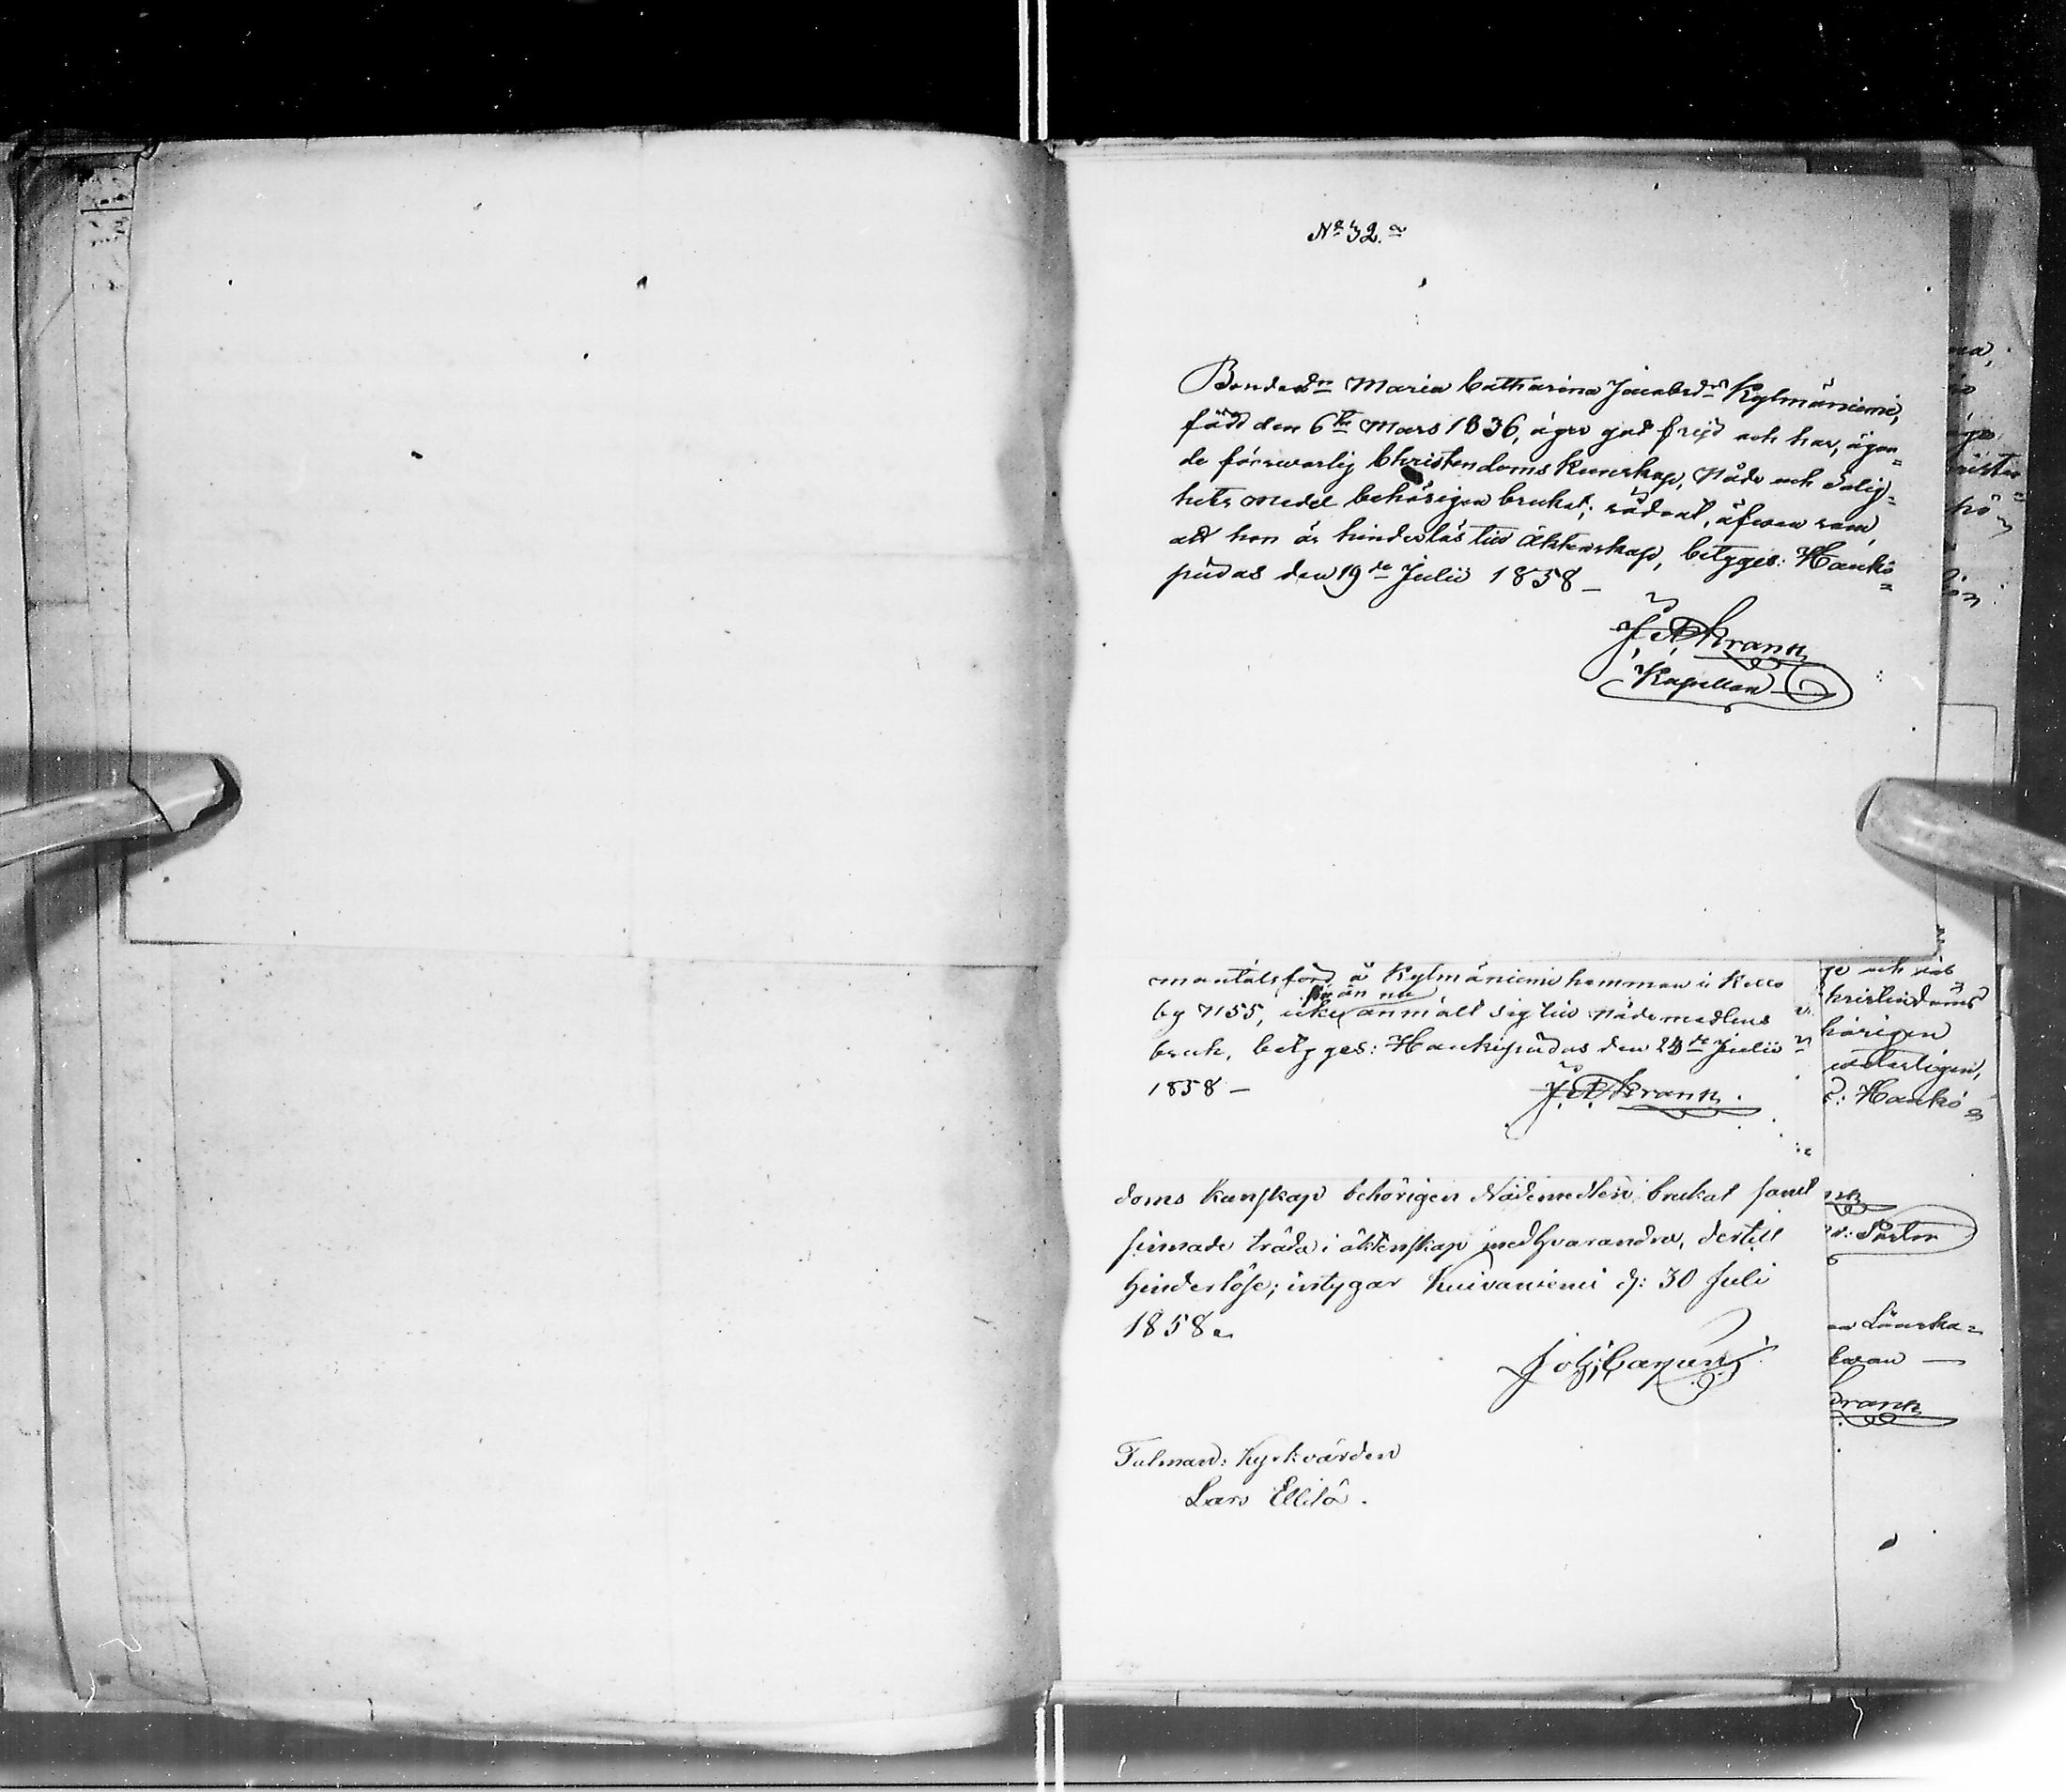 No 32.
Bondedn Maria Catharina Jacobsdr Kylmäniemi,
född den 6te Mars 1836, äger god frejd och har, ägan=
de försvarlig Christendoms kunskap, Nåde och Salig=
hets medel behörigen brukat; sådant, äfven som,
att hon är hinderlös till Äktenskap, betyges: Hauki=
pudas den 19de Julii 1858 —
J. A. Krank
Kapellan
mantalsförd å Kylmäniemi hemman i Kello
by N 55, icke förr än nu anmält sig till nådemedlens
bruk, betyges: Haukipudas den 23de Julii
1858 —
J. A. Krank.
doms kunskap behörigen Nådemedlen brukat samt
sinnade träda i äktenskap med hvarandra, dertill
hinderlöse; intygar Kuivaniemi d: 30 Juli
1858.
Joh: Cajan
Talman: Kyrkvärden
Lars Ellilä.
hörigen
: Hauki=
Krank